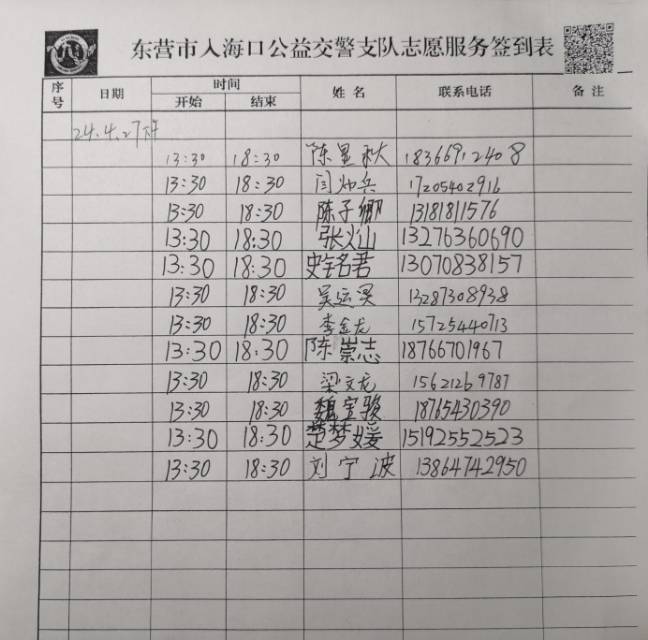 东营市入海口公益交警支队志愿服务签到表
序号 日期 时间 姓名 联系电话 备注
开始 结束
24.4.27
13:30 18:30 陈星秋 18366912408
13:30 18:30 闫灿兵 17205402916
13:30 18:30 陈子卿 13181811576
13:30 18:30 张火山 13276360690
13:30 18:30 史铭君 13070838157
13:30 18:30 吴运 13287308938
13:30 18:30 李金龙 15725440713
13:30 18:30 陈崇志 18766701967
13:30 18:30 梁文龙 15621269787
13:30 18:30 魏宝骏 18765430390
13:30 18:30 楚梦媛 15192552523
13:30 18:30 刘宁波 13864742950